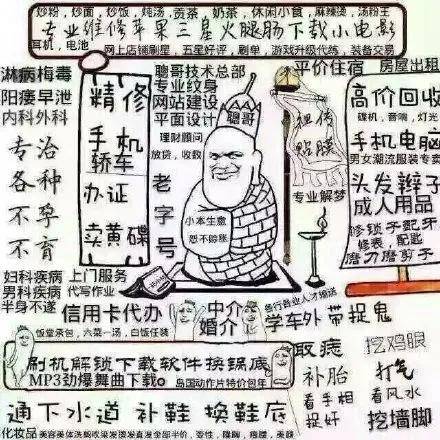 炒粉，炒面，炒饭，炖汤，贡茶 奶茶，休闲小食，麻辣烫，汤粉王
专业维修苹果三星火腿肠下载小电影
耳机，电池
网上店铺刷星，五星好评，刷单，游戏升级代练，装备交易
淋病梅毒
阳痿早泄
内科外科
专治
各种
不孕
不育
精修
手机
轿车
办证
卖黄碟
聪哥技术总部
专业纹身
网站建设
平面设计
理财顾问
放贷，收数
老字号
聪哥
小本生意
恕不赊账
平价住宿 房屋出租
贴膜
专业解梦
高价回收
碟机，音响，灯光
手机电脑
男女潮流服装专卖
头发辫子
成人用品
修锁子配牙
修表，配匙
磨刀磨剪子
妇科疾病
男科疾病
半身不遂
上门服务
代写作业
信用卡代办
饭堂承包，六菜一汤，白饭任装
中介
婚介
各行各业人才输送
学车外带捉鬼
刷机解锁下载软件换锅底
MP3劲爆舞曲下载
岛国动作片特价包年
取痣
补胎
看手相
捉奸
挖鸡眼
打气
看风水
挖墙脚
通下水道 补鞋 换鞋底
化妆品